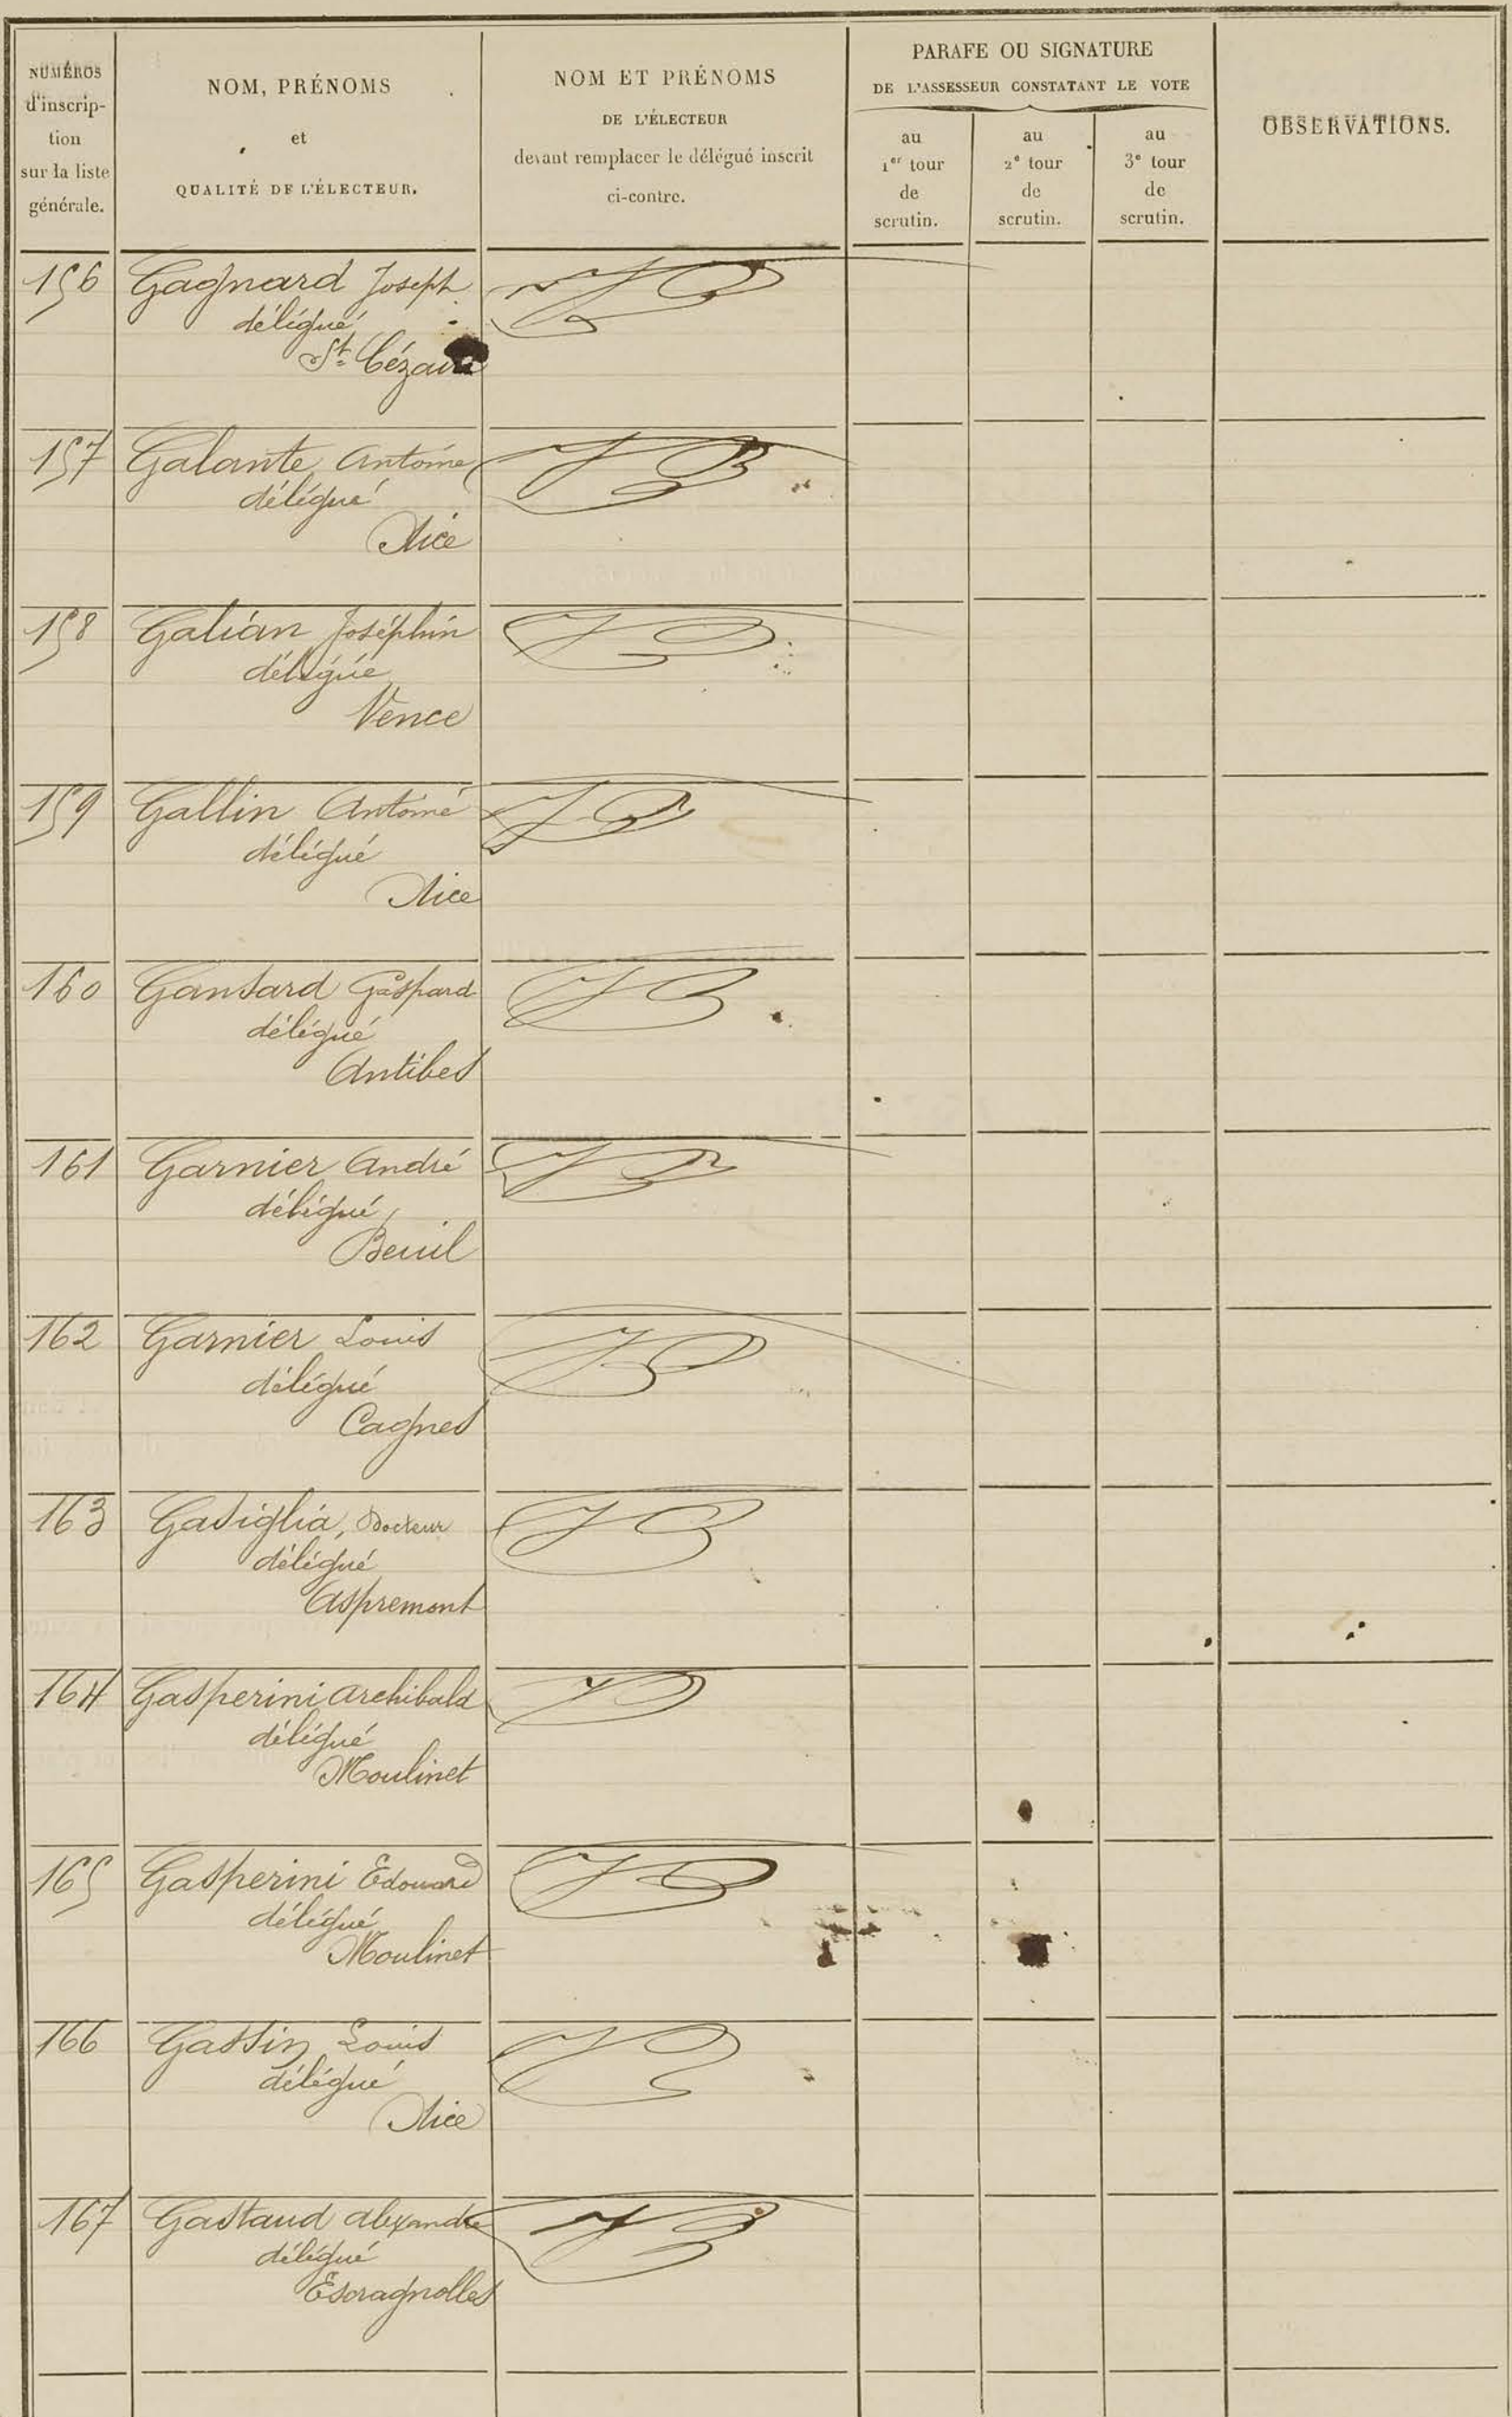 NUMÉROS
d'inscrip-
tion
sur la liste
générale.
NOM, PRÉNOMS
et
QUALITÉ DE L'ÉLECTEUR.
NOM ET PRÉNOMS
DE L'ÉLECTEUR
devant remplacer le délégué inscrit
ci-contre.
PARAFE OU SIGNATURE
DE L'ASSESSEUR CONSTATANT LE VOTE
au
1er tour
de
scrutin.
au
2e tour
de
scrutin.
au
3e tour
de
scrutin.
OBSERVATIONS.
156 Gagnard Joseph
délégué
St Cézaire
157 Galante Antoine
délégué
Nice
158 Galian Joséphin
délégué
Vence
159 Gallin Antoine
délégué
Nice
160 Gansard Gaspard
délégué
Antibes
161 Garnier André
délégué
Beuil
162 Garnier Louis
délégué
Cagnes
163 Gasiglia, Docteur
délégué
Aspremont
164 Gasperini Archibald
délégué
Moulinet
165 Gasperini Edouard
délégué
Moulinet
166 Gassin Louis
délégué
Nice
167 Gastaud Alexandre
délégué
Escragnolles